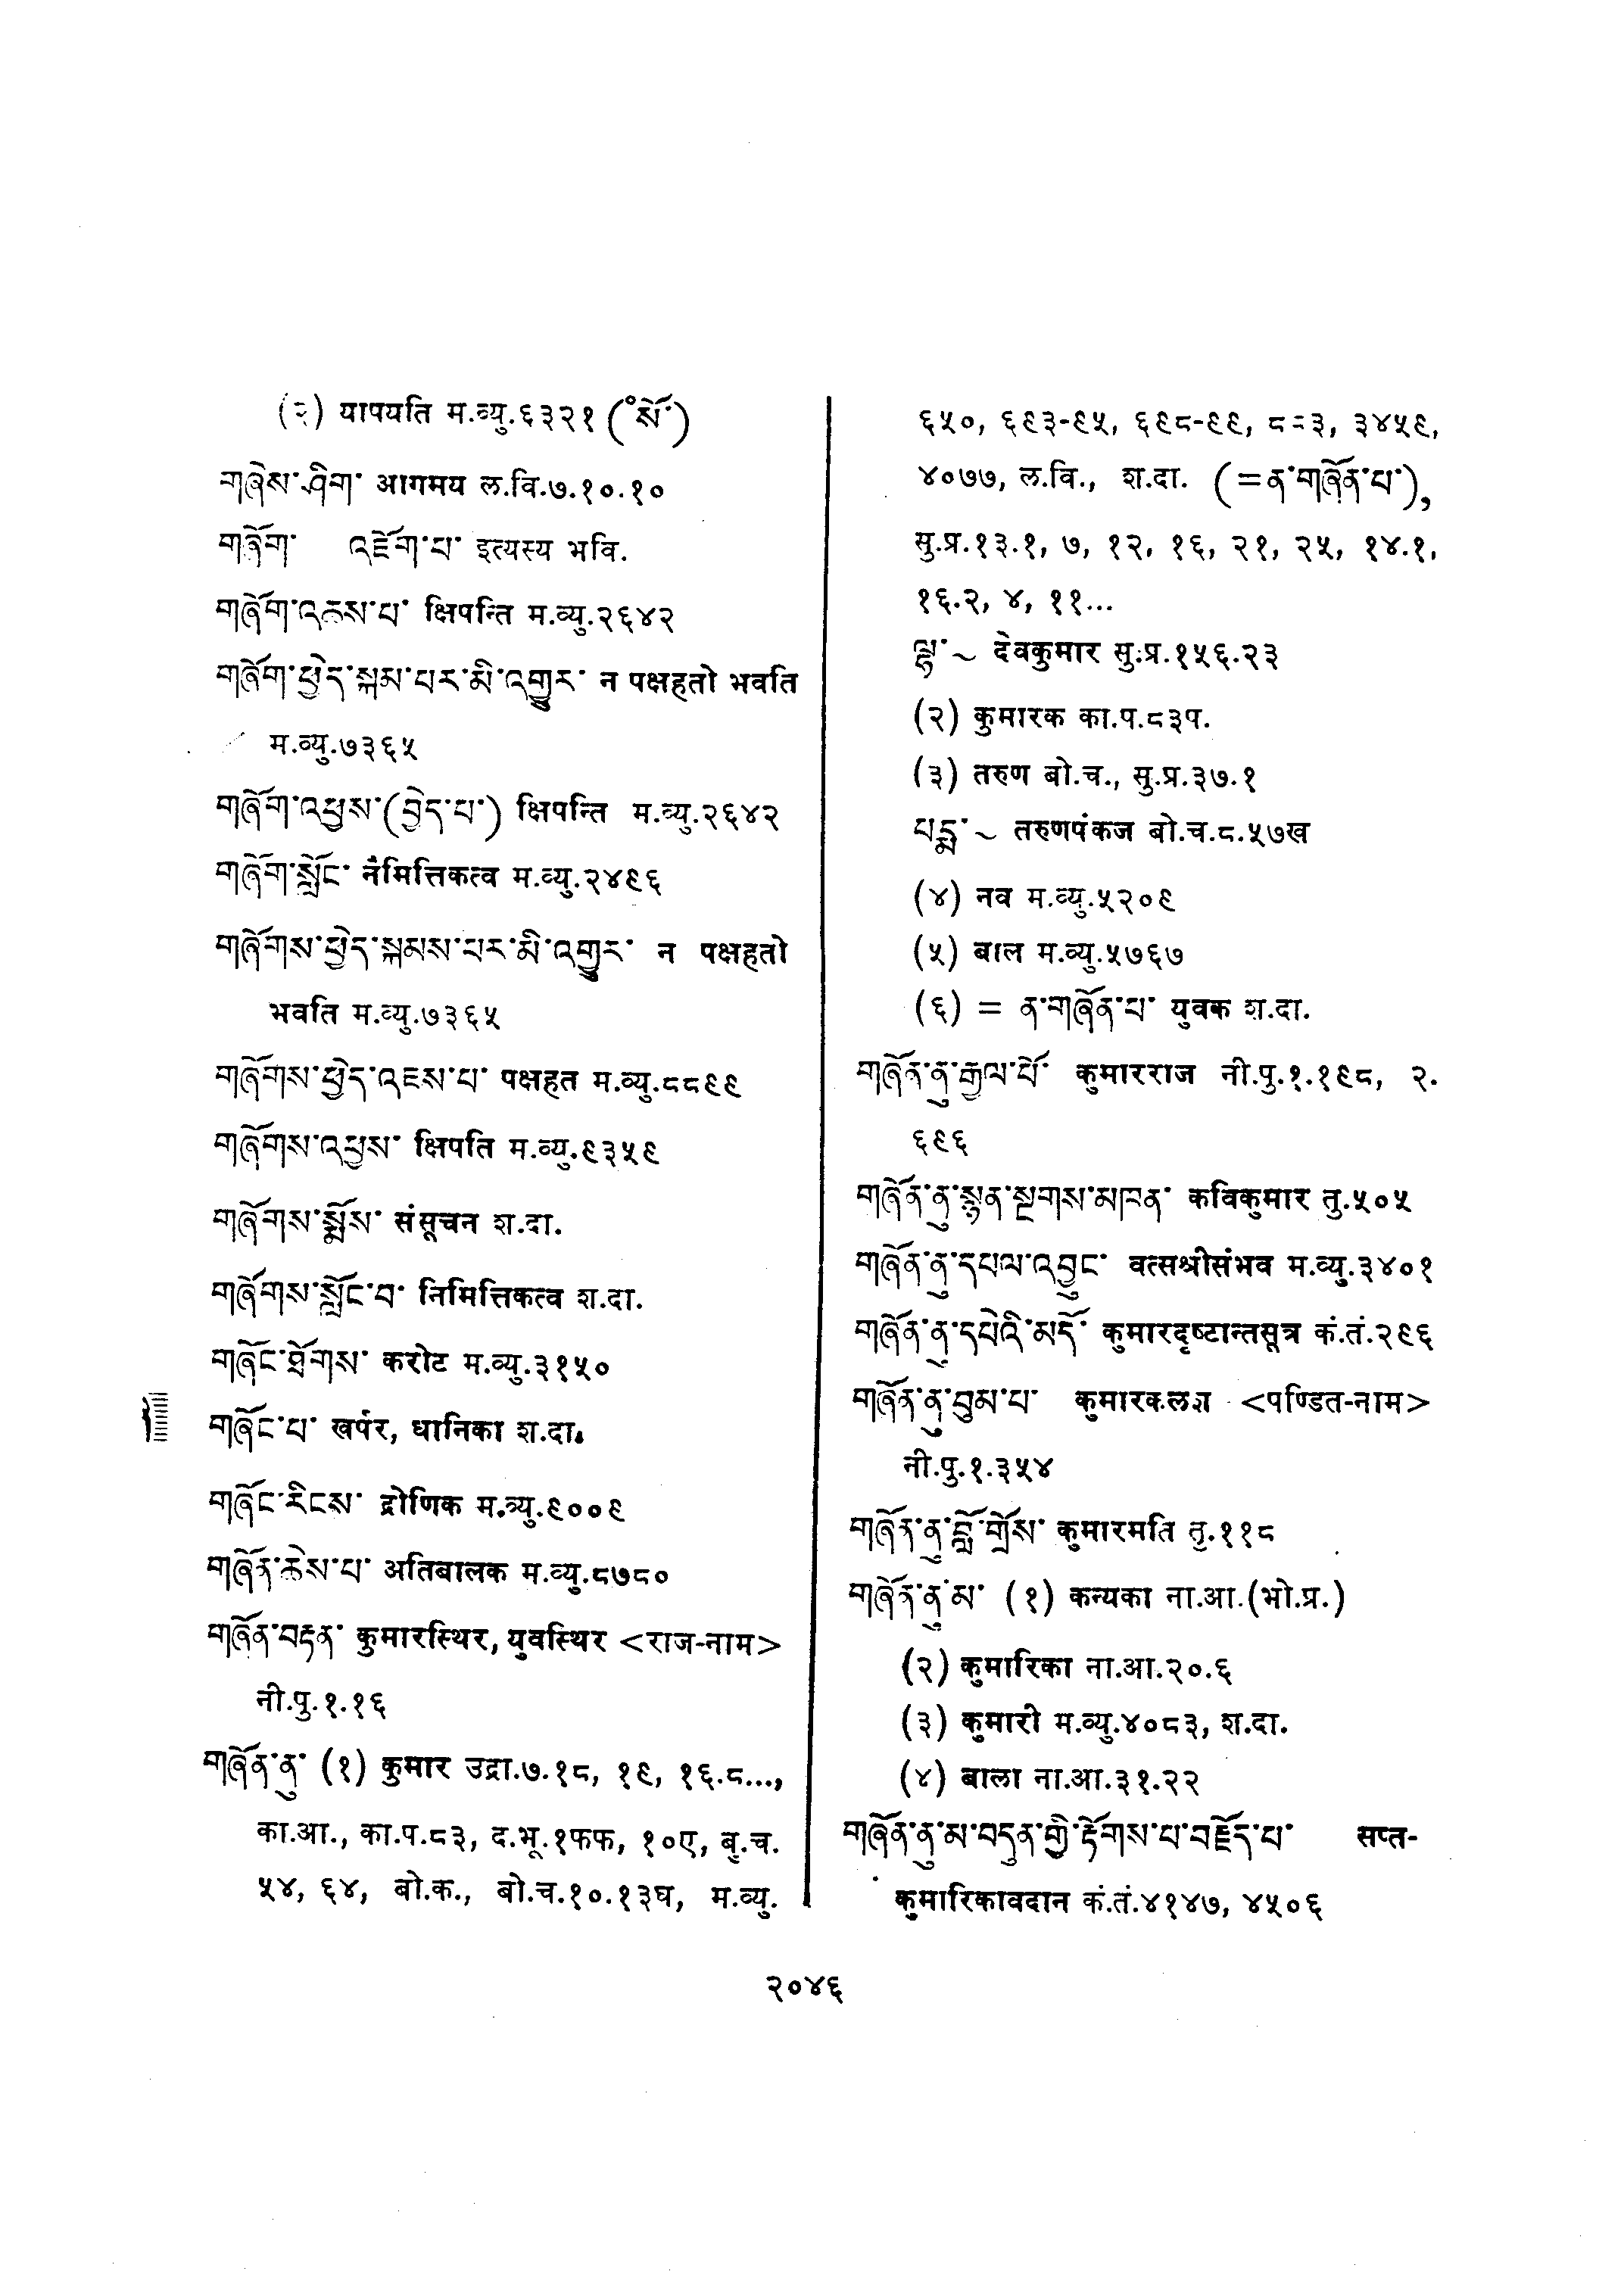 (२) यापयति म.व्यु.६३२१ (॰སོ་)
གཞེས་ཤིག་ आगमय ल.वि.७.१०.१०
གཞོག་ འཇོག་པ་ इत्यस्य भवि.
གཞོག་འཆས་པ་ क्षिपन्ति म.व्यु.२६४२
གཞོག་ཕྱེད་སྐམ་པར་མི་འགྱུར་ न पक्षहतो भवति
म.व्यु.७३६५
གཞོག་འཕྱས་(བྱེད་པ་) क्षिपन्ति म.व्यु.२६४२
གཞོག་སློང་ नैमित्तिकत्व म.व्यु.२४९६
གཞོགས་ཕྱེད་སྐམས་པར་མི་འགྱུར་ न पक्षहतो
भवति म.व्यु.७३६५
གཞོགས་ཕྱེད་འཇས་པ་ पक्षहत म.व्यु.८८९९
གཞོགས་འཕྱས་ क्षिपति म.व्यु.९३५९
གཞོགས་སྨོས་ संसूचन श.दा.
གཞོགས་སློང་བ་ निमित्तिकत्व श.दा.
གཞོང་ཐོགས་ करोट म.व्यु.३१५०
གཞོང་པ་ खर्पर, धानिका श.दा.
གཞོང་རིངས་ द्रोणिक म.व्यु.९००९
གཞོན་ཆེས་པ་ अतिबालक म.व्यु.८७८०
གཞོན་བརྟན་ कुमारस्थिर, युवस्थिर <राज-नाम>
नी.पु.१.१६
གཞོན་ནུ་ (१) कुमार उद्रा.७.१८, १९, १६.८...,
का.आ., का.प.८३, द.भू.१फफ, १०ए, बु.च.
५४, ६४, बो.क., बो.च.१०.१३घ, म.व्यु.
६५०, ६९३-९५, ६९८-९९, ३४५९,
४०७७, ल.वि., श.दा. (=ན་གཞོན་པ་),
सु.प्र.१३.१, ७, १२, १६, २१, २५, १४.१,
१६.२, ४, ११...
ལྷ་ ~ देवकुमार सु.प्र.१५६.२३
(२) कुमारक का.प.८३प.
(३) तरुण बो.च., सु.प्र.३७.१
པདྨ་ ~ तरुणपंकज बो.च.८.५७ख
(४) नव म.व्यु.५२०९
(५) बाल म.व्यु.५७६७
(६) = ན་གཞོན་པ་ युवक श.दा.
གཞོན་ནུ་རྒྱལ་པོ་ कुमारराज नी.पु.१.१९८, २.
६९६
གཞོན་ནུ་སྙན་དངགས་མཁན་ कविकुमार तु.५०५
གཞོན་ནུ་དཔལ་འབྱུང་ वत्सश्रीसंभव म.व्यु.३४०१
གཞོན་ནུ་དཔེའི་མདོ་ कुमारदृष्टान्तसूत्र कं.तं.२९६
གཞོན་ནུ་བུམ་པ་ कुमारकलश <पण्डित-नाम>
नी.पु.१.३५४
གཞོན་ནུ་བློ་གྲོས་ कुमारमति तु.११८
གཞོན་ནུ་མ་ (१) कन्यका ना.आ.(भो.प्र.)
(२) कुमारिका ना.आ.२०.६
(३) कुमारी म.व्यु.४०८३, श.दा.
(४) बाला ना.आ.३१.२२
གཞོན་ནུ་མ་བདུན་གྱི་རྟོགས་པ་བརྗོད་པ་ सप्त-
कुमारिकावदान कं.तं.४१४७, ४५०६
२०४६